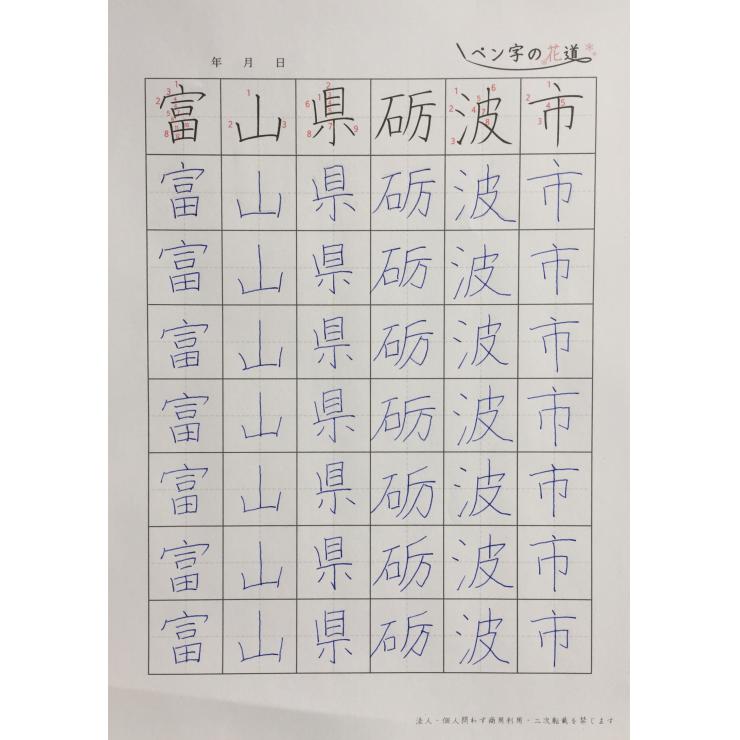 ペン字の花道
年 月 日
富山県砺波市
富山県砺波市
富山県砺波市
富山県砺波市
富山県砺波市
富山県砺波市
富山県砺波市
富山県砺波市
法人・個人問わず商用利用・二次転載を禁じます